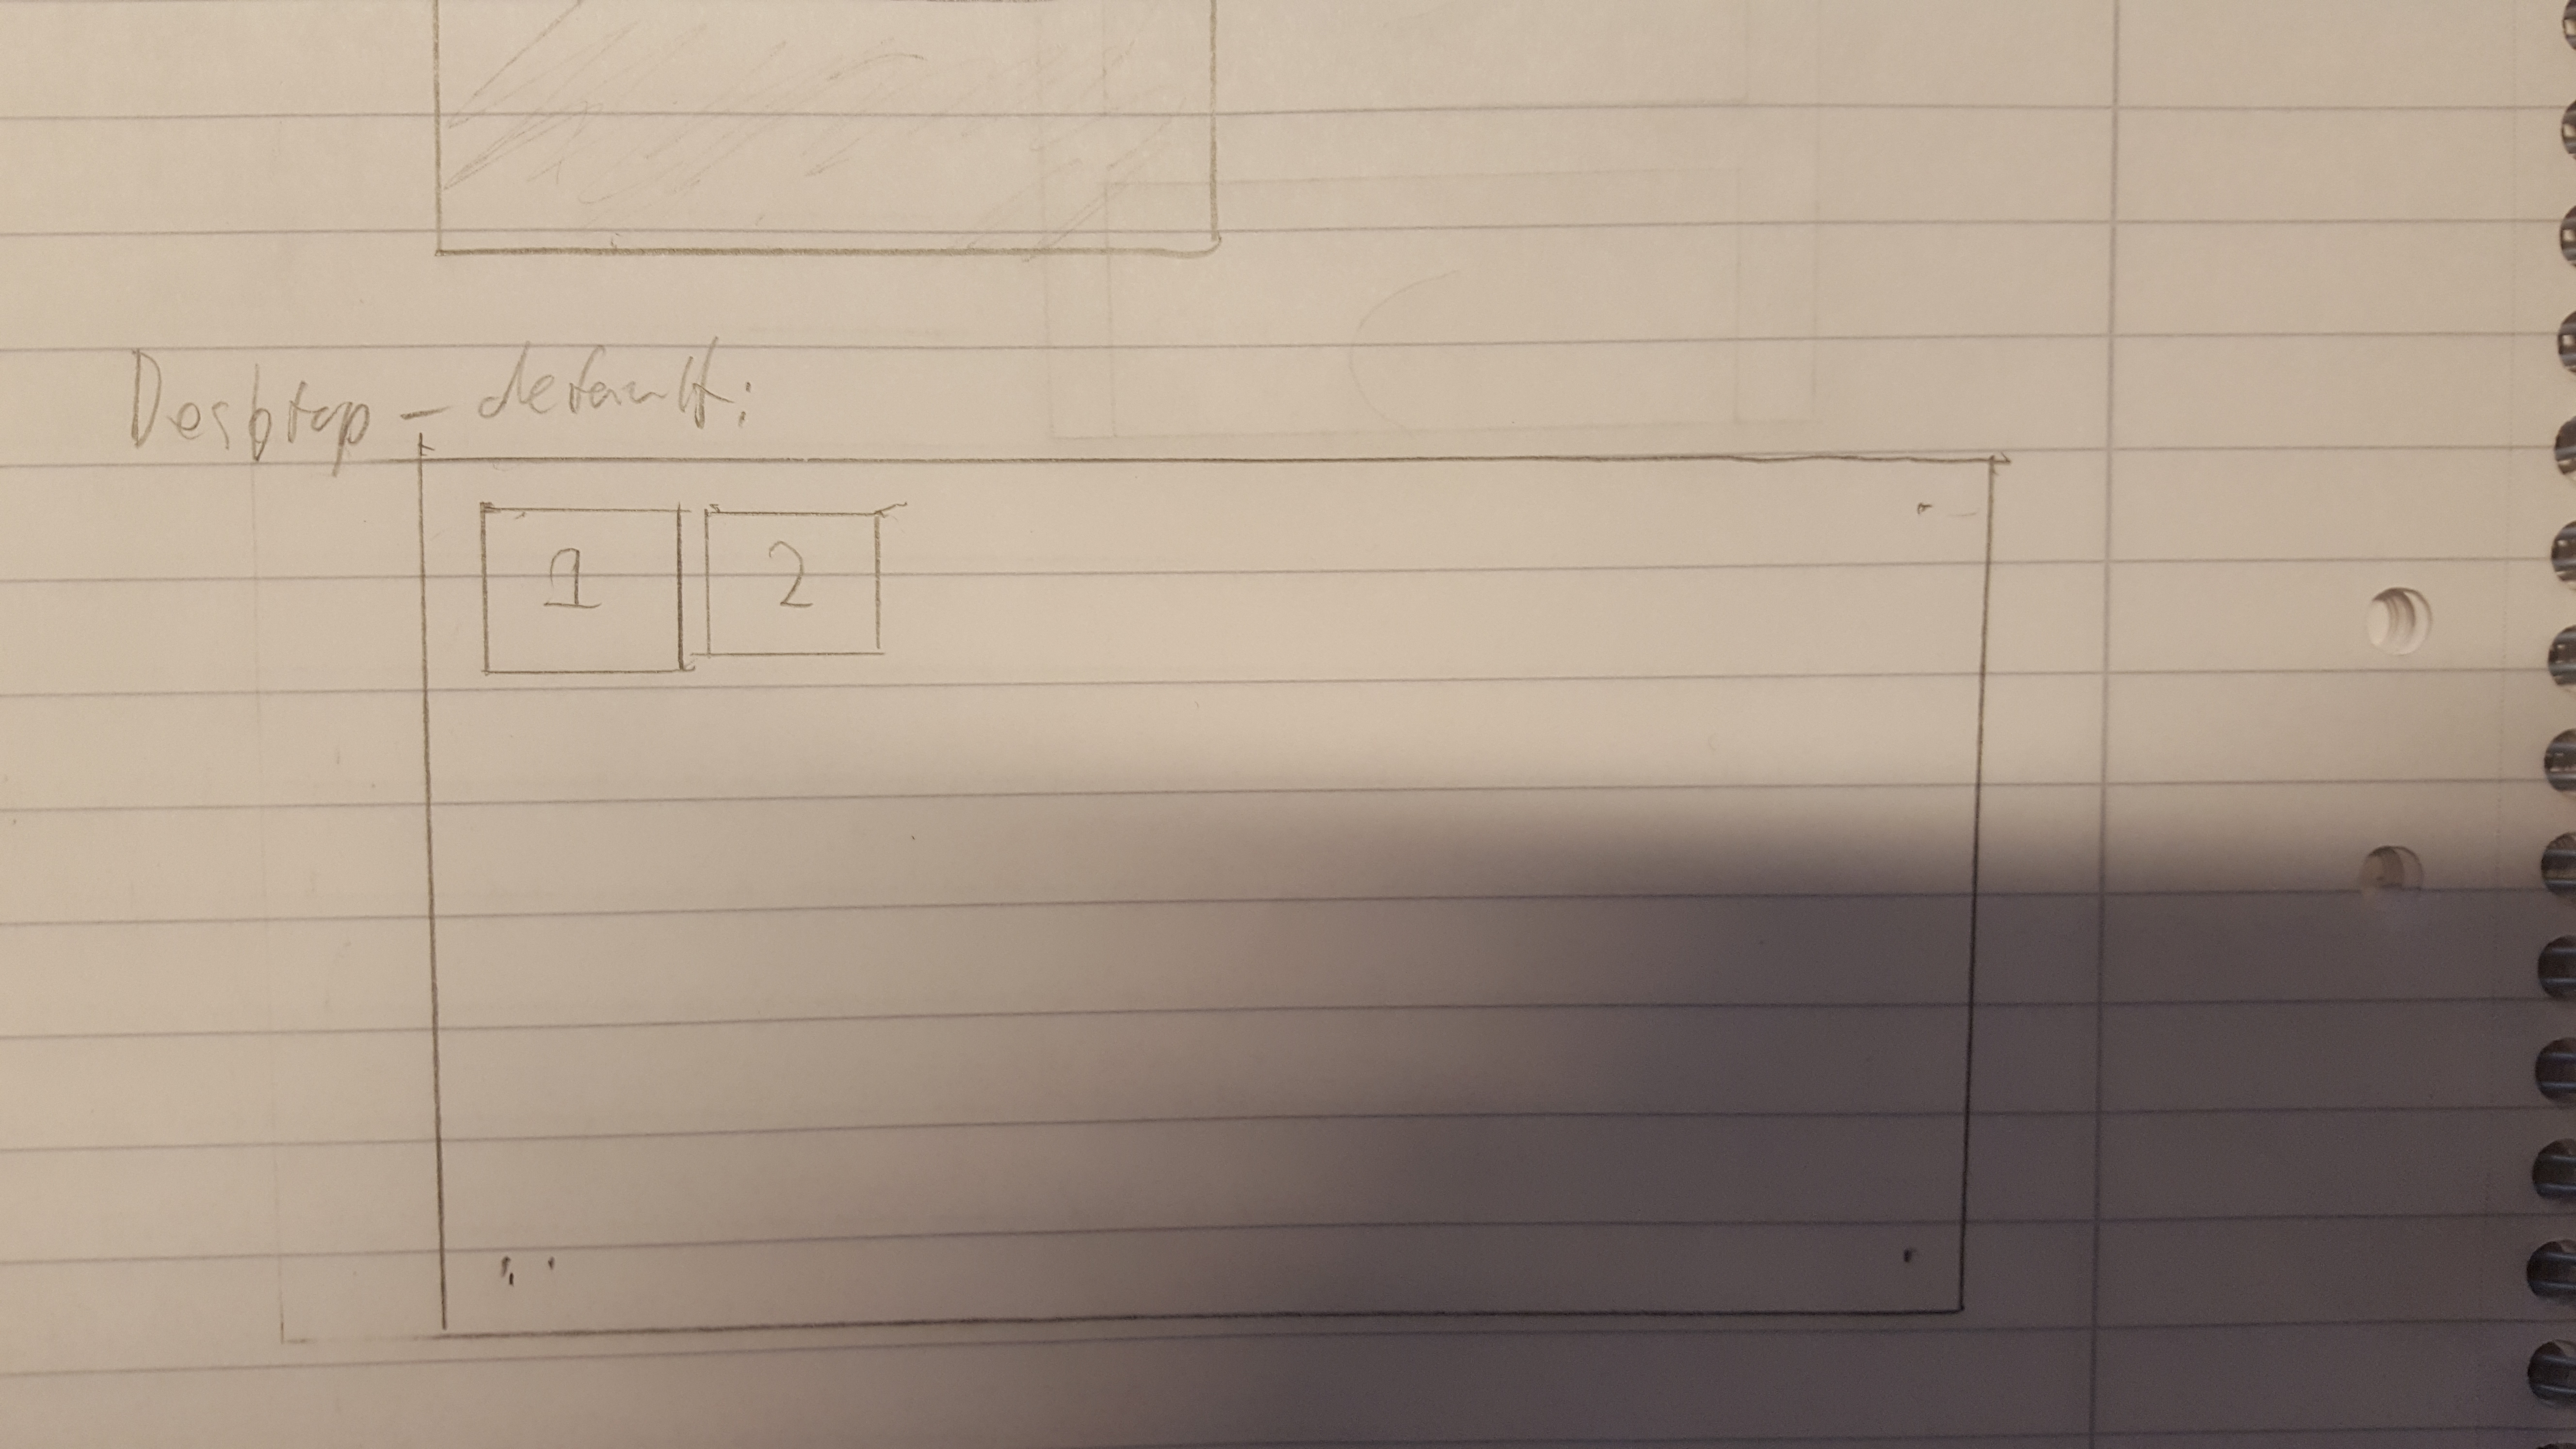 Desktop - default:
1 2